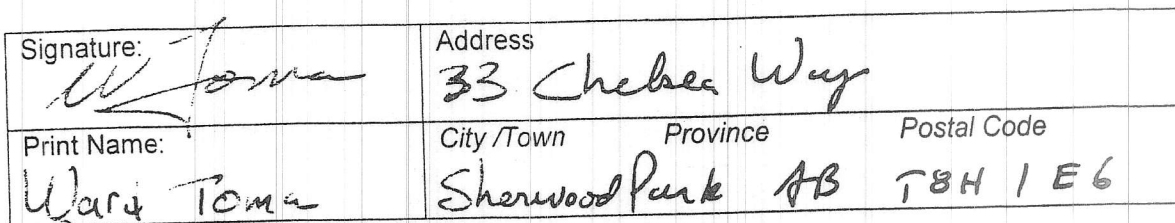 Signature: W Toma
Address
33 Chelsea Way
Print Name:
Ward Toma
City /Town Province Postal Code
Sherwood Park AB T8H 1E6